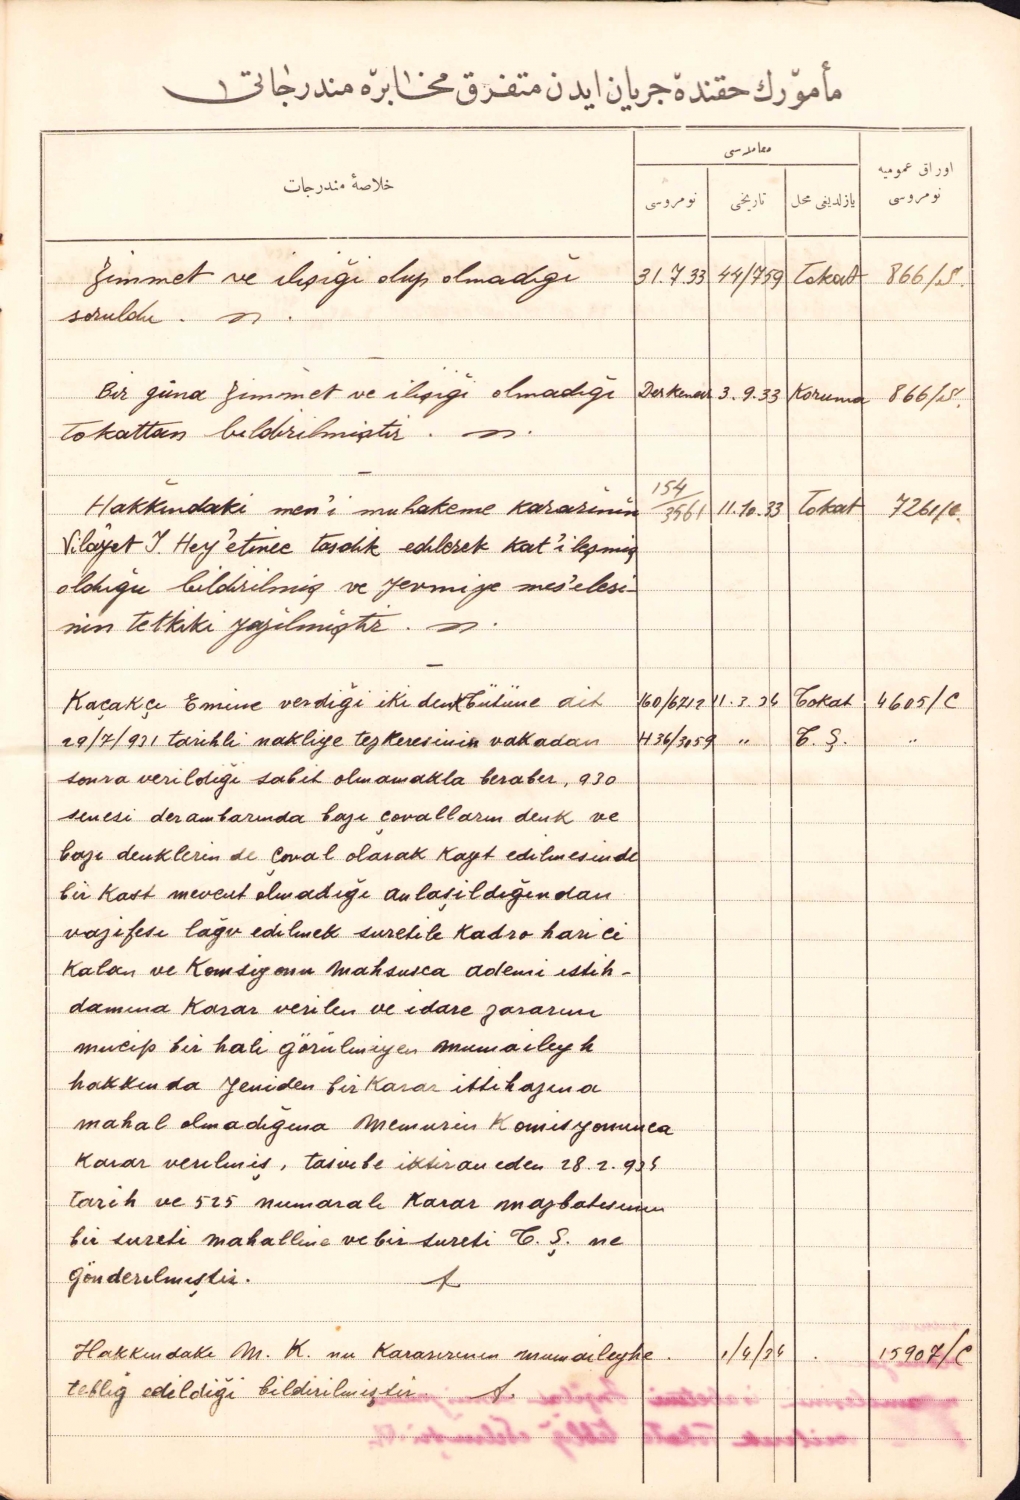 مأمورك حقنده جريان ايدن متفرق مخابره مندرجاتى
خلاصهٔ مندرجات
معاملاسى
نومروسى
تاريخى
يازلديغى محل
اوراق عموميه نومروسى
Zimmet ve ilişiği olup olmadığı 31.7.33 44/759 Tokat 866/S.
soruldu.
Bir güna zimmet ve ilişiği olmadığı Derkenar 3.9.33 Koruma 866/S.
Tokattan bildirilmiştir.
Hakkındaki men'i muhakeme kararının 154/3561 11.10.33 Tokat 7261/
Vilâyet İ. Hey'etince tasdik edilerek kat'ileşmiş
olduğu bildirilmiş ve yevmiye mes'elesi-
nin tetkiki yazılmıştır.
Kaçakçı Emine verdiği iki denk tütüne ait 160/6212 11.3.34 Tokat 4605/C
29/7/931 tarihli nakliye tezkeresinin vakadan 436/3059 " T. Ş. "
sonra verildiği sabit olmamakla beraber, 930
senesi der ambarında bazı çovalların denk ve
bazı denklerin de çoval olarak kayt edilmesinde
bir kast mevcut olmadığı anlaşıldığından
vazifesi lağv edilmek suretile kadro harici
kalan ve Komsiyonu Mahsusca ademi istih-
damına karar verilen ve idare zararını
mucip bir hali görülmiyen mumaileyh
hakkında yeniden bir karar ittihazına
mahal olmadığına Memurin Komisyonunca
karar verilmiş, tasvibe iktiran eden 28.2.934
tarih ve 525 numaralı karar mazbatasının
bir sureti mahalline ve bir sureti T. Ş. ne
gönderilmiştir.
Hakkındaki M. K. nu kararının mumaileyhe 1/4/34 15907/C
tebliğ edildiği bildirilmiştir.